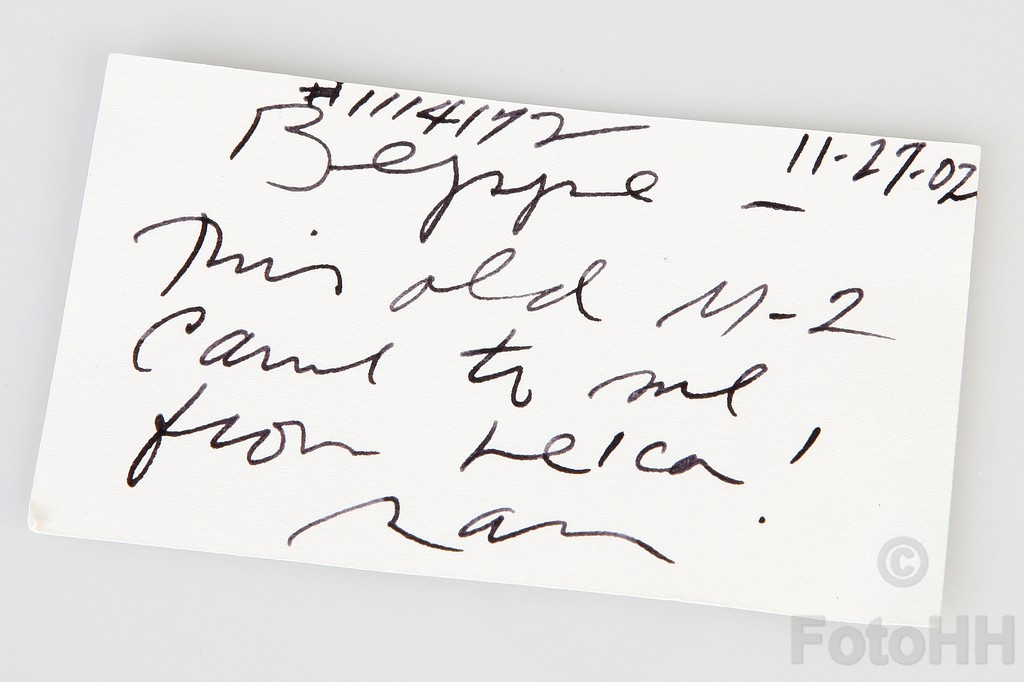 #1114172
11-27-02
Beppe —
This old M-2
came to me
from Leica!
© FotoHH